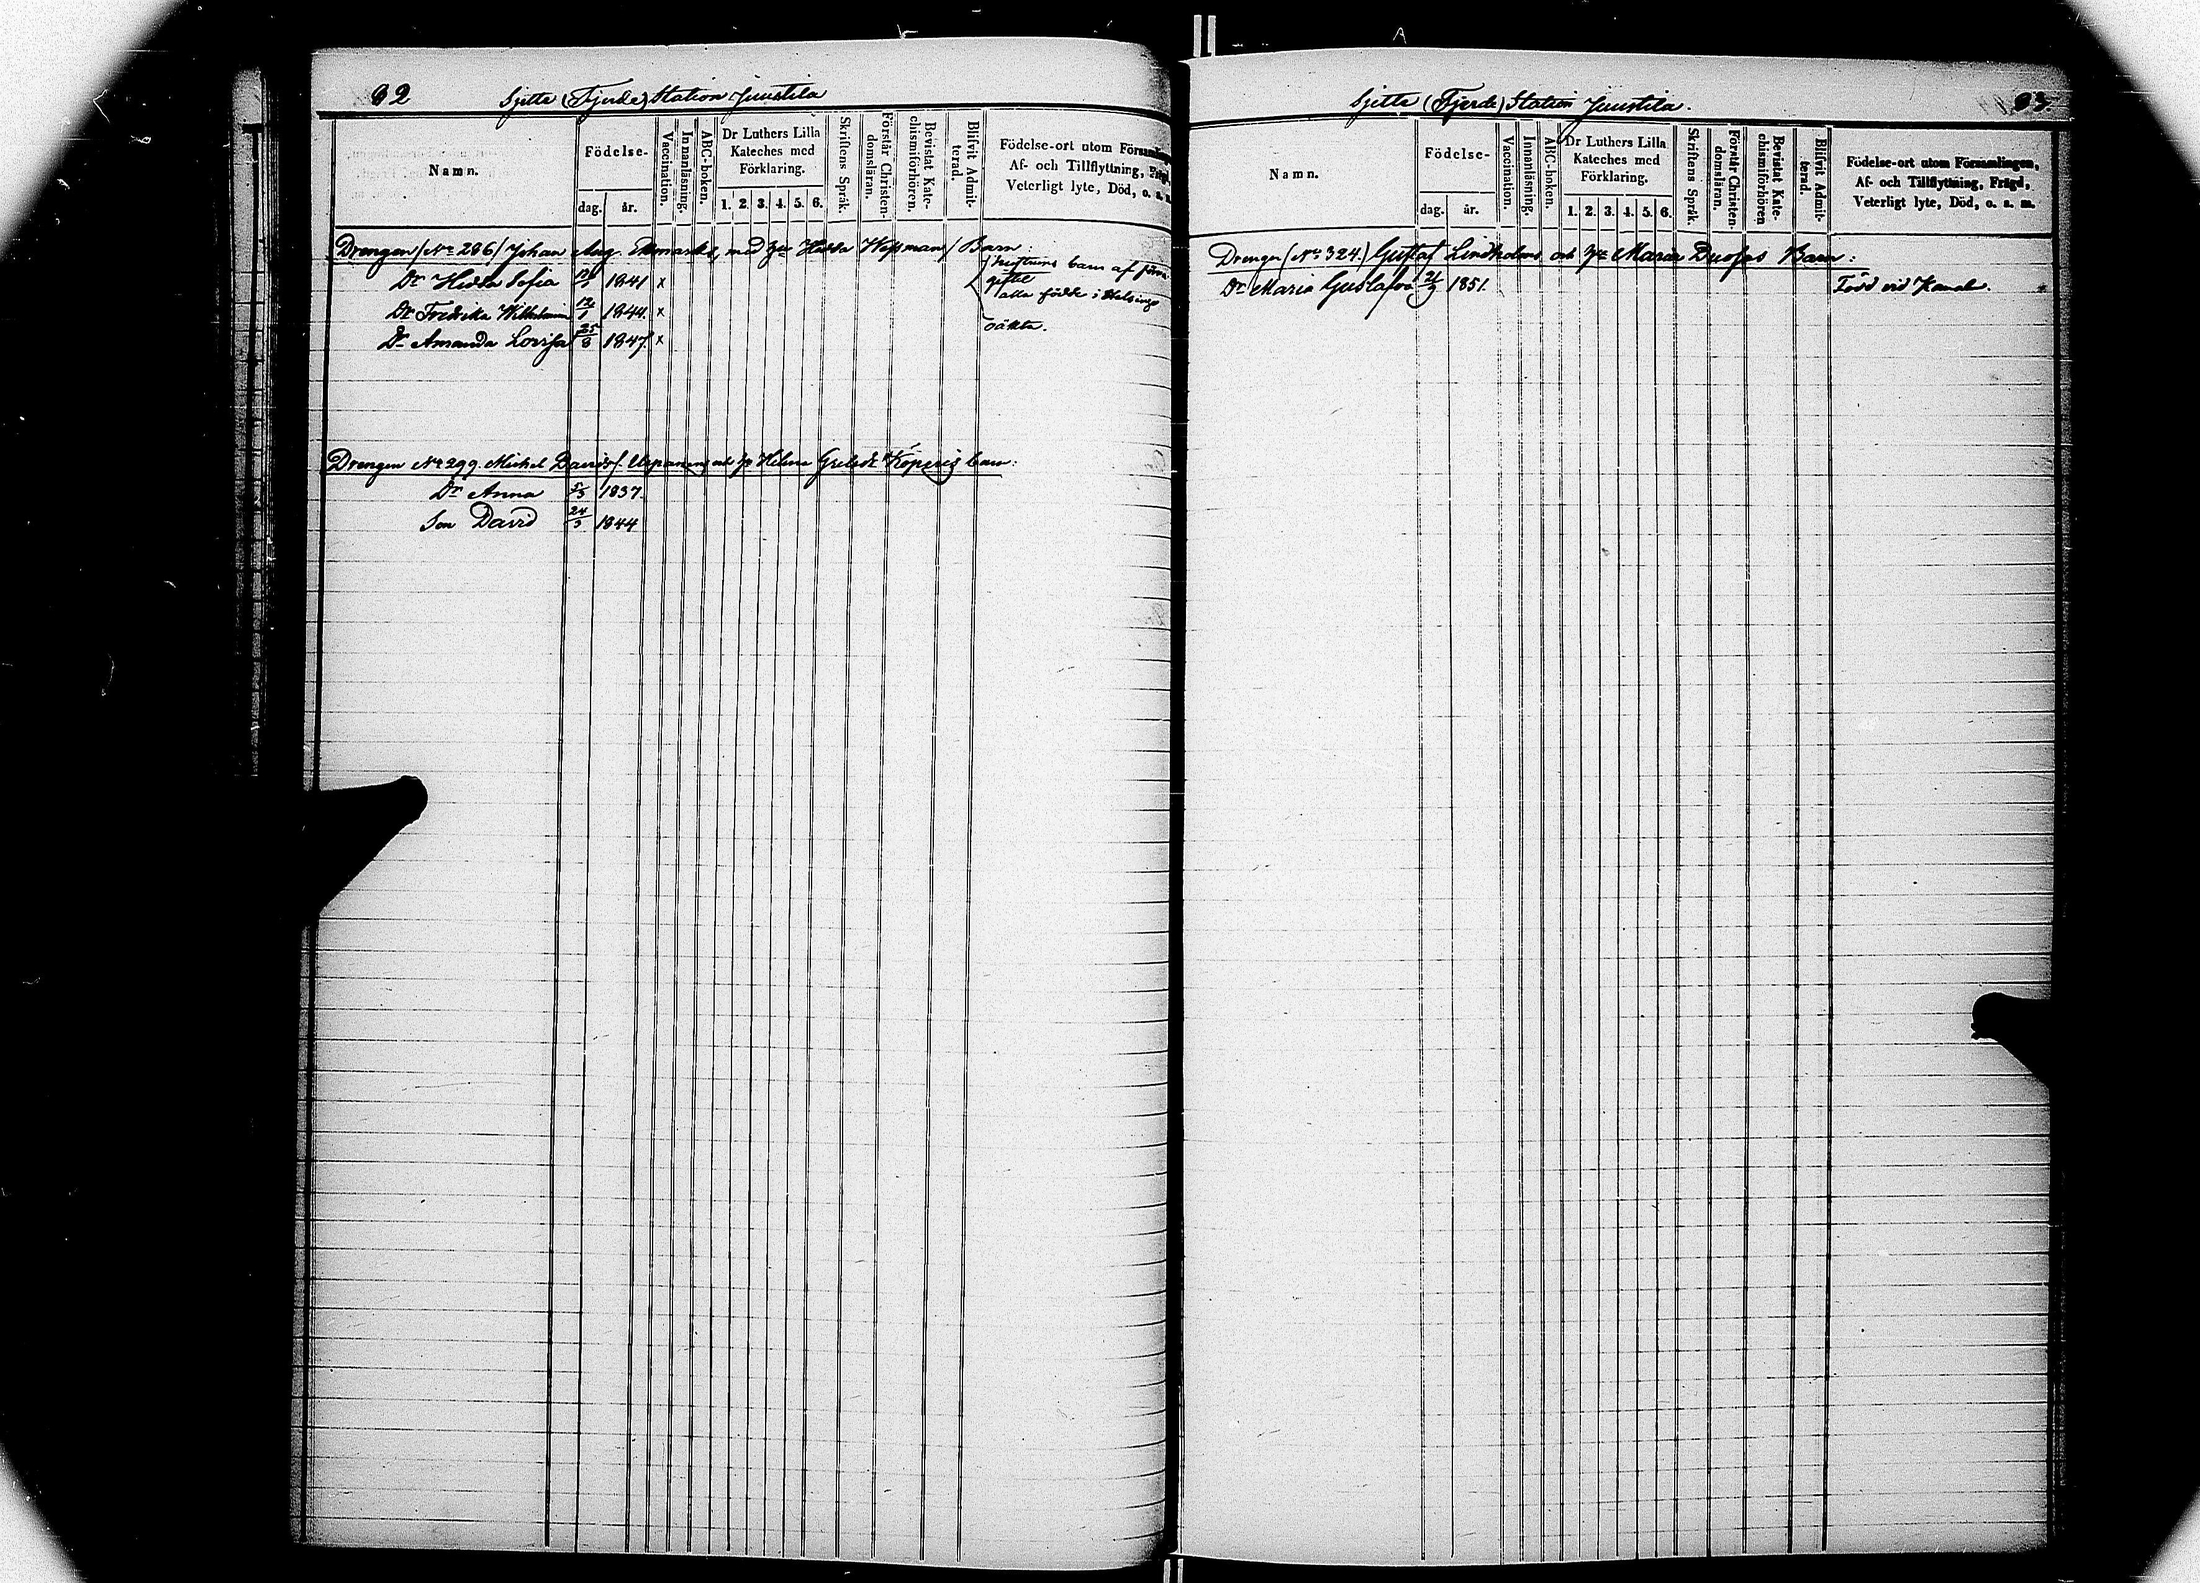 92
Sjette (Fjerde) Station Juustila
Namn.
Födelse-
dag.
år.
Vaccination.
Innanläsning.
ABC-boken.
Dr Luthers Lilla
Kateches med
Förklaring.
1. 2. 3. 4. 5. 6.
Skriftens Språk.
Förstår Christen-
domsläran.
Bevistat Kate-
chismiförhören.
Blifvit Admit-
terad.
Födelse-ort utom Församlingen
Af- och Tillflyttning,
Veterligt lyte, Död, o. s.
Drengen (No 286) Johan Aug. med Hu Hedda Wessman / Barn:
Dr Hedda Sofia 1841 x
barn af
gifte
alla födde i Helsingf
Dr Fredrika Wilhelmin 12/1 1844. x
oäkta.
Dr Amanda Lovisa 25/8 1847. x
Drengen No 299. Michel Davidsf. och Hu Helena barn:
Dr Anna 5/3 1837.
Son David 24/3 1844
93
Sjette (Fjerde) Station Juustila.
Namn.
Födelse-
dag.
år.
Vaccination.
Innanläsning.
ABC-boken.
Dr Luthers Lilla
Kateches med
Förklaring.
1. 2. 3. 4. 5. 6.
Skriftens Språk.
Förstår Christen-
domsläran.
Bevistat Kate-
chismiförhören
Blifvit Admit-
terad.
Födelse-ort utom Församlingen,
Af- och Tillflyttning, Frägd,
Veterligt lyte, Död, o. s. m.
Drengen (No 324.) Gustaf Lindholms och Hu Maria Barn:
Dr Maria Gustafva 21/9 1851. Född vid Kanal.